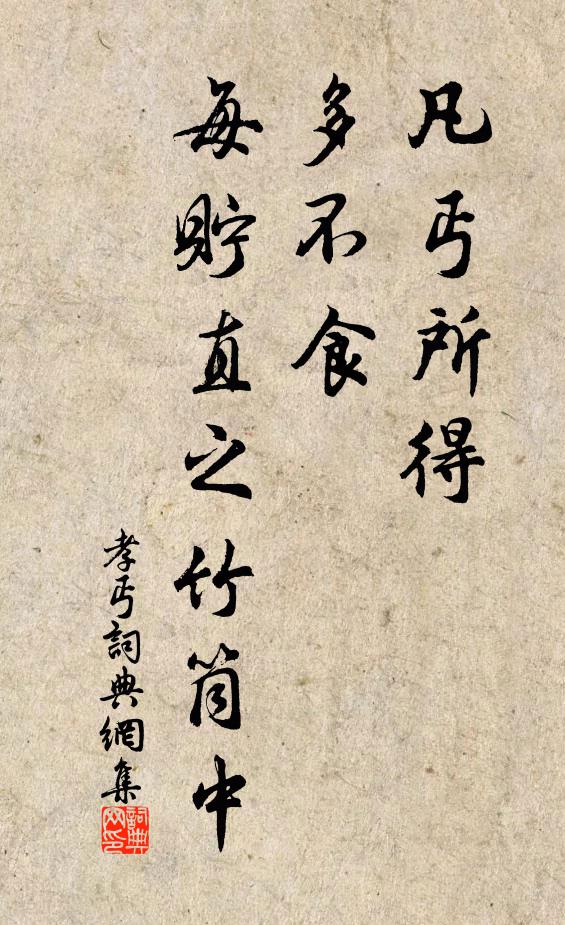 凡丐所得
多不食
每貯直之竹筒中
孝丐詞典網集
詞典网印